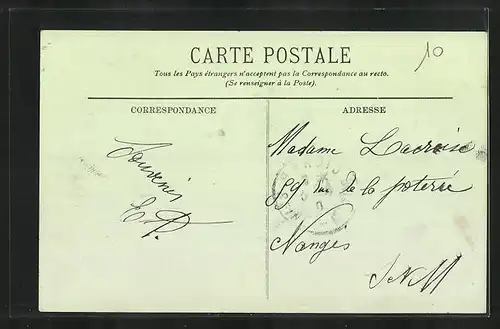 10
CARTE POSTALE
Tous les Pays étrangers n'acceptent pas la Correspondance au recto.
(Se renseigner à la Poste).
CORRESPONDANCE
ADRESSE
Souvenir
Madame Lacroise
59 rue de la poterie
Nangis
S N M